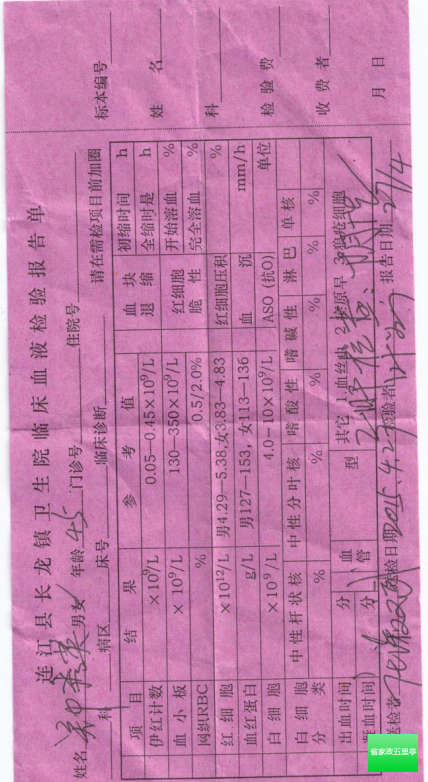 连江县长龙镇卫生院临床血液检验报告单
姓名 男女 年龄 45 门诊号 住院号
科 病区 床号 临床诊断 请在需检项目前加圈
项目 结果 参考值 血块退缩 初缩时间 h
全缩时是 h
伊红计数 ×10⁹/L 0.05-0.45×10⁹/L
血小板 ×10⁹/L 130-350×10⁹/L 红细胞脆性 开始溶血 %
网织RBC % 0.5/2.0% 完全溶血 %
红细胞 ×10¹²/L 男4.29-5.38,女3.83-4.83 红细胞压积 %
血红蛋白 g/L 男127-153,女113-136 血沉 mm/h
白细胞 ×10⁹/L 4.0-10×10⁹/L ASO(抗O) 单位
白细胞分类 中性杆状核 % 中性分叶核 % 嗜酸性 % 嗜碱性 % 淋巴 % 单核 %
出血时间 分 血型 其它 1.血丝虫 2.疟原早 3.狼疮细胞
凝血时间 分 管
送检者 送检日期 2015.4.2 检验者 报告日期 4
标本编号
姓名
科
检验费
收费者
月 日
省家政五里亭